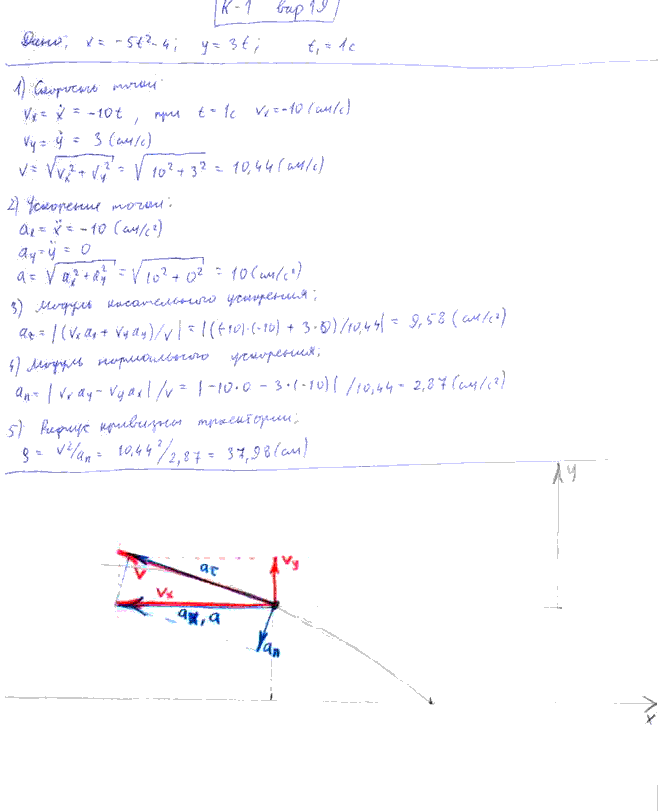 К-1 вар 19
Дано: x = -5t²-4; y = 3t; t₁ = 1с
1) Скорость точки
Vx = ẋ = -10t, при t = 1с Vx = -10 (см/с)
Vy = ẏ = 3 (см/с)
V = √(Vx² + Vy²) = √(10² + 3²) = 10,44 (см/с)
2) Ускорение точки:
ax = ẍ = -10 (см/с²)
ay = ÿ = 0
a = √(ax² + ay²) = √(10² + 0²) = 10 (см/с²)
3) Модуль касательного ускорения:
aτ = |(Vx ax + Vy ay)/V| = |((-10)·(-10) + 3·0)/10,44| = 9,58 (см/с²)
4) Модуль нормального ускорения:
an = |Vx ay - Vy ax|/V = |-10·0 - 3·(-10)|/10,44 = 2,87 (см/с²)
5) Радиус кривизны траектории:
ρ = V²/an = 10,44²/2,87 = 37,98 (см)
y
Vy
aτ
V
Vx
ax, a
an
x